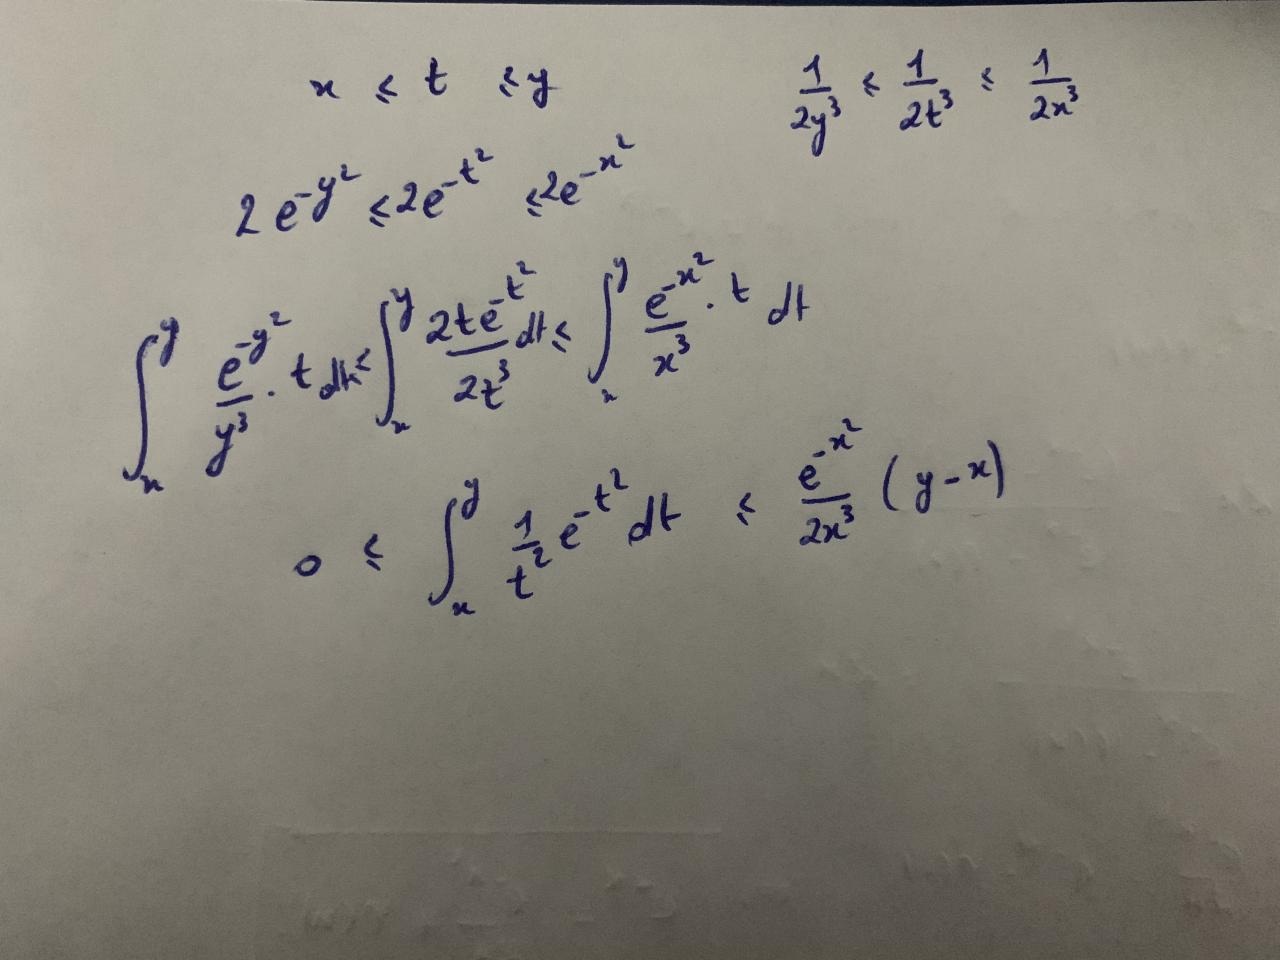 x ≤ t ≤ y    1/2y³ ≤ 1/2t³ ≤ 1/2x³
2 e^{-y²} ≤ 2e^{-t²} ≤ 2e^{-x²}
∫_x^y e^{-y²}/y³ . t dt ≤ ∫_x^y 2te^{-t²}/2t³ dt ≤ ∫_x^y e^{-x²}/x³ . t dt
0 ≤ ∫_x^y 1/t² e^{-t²} dt ≤ e^{-x²}/2x³ (y-x)